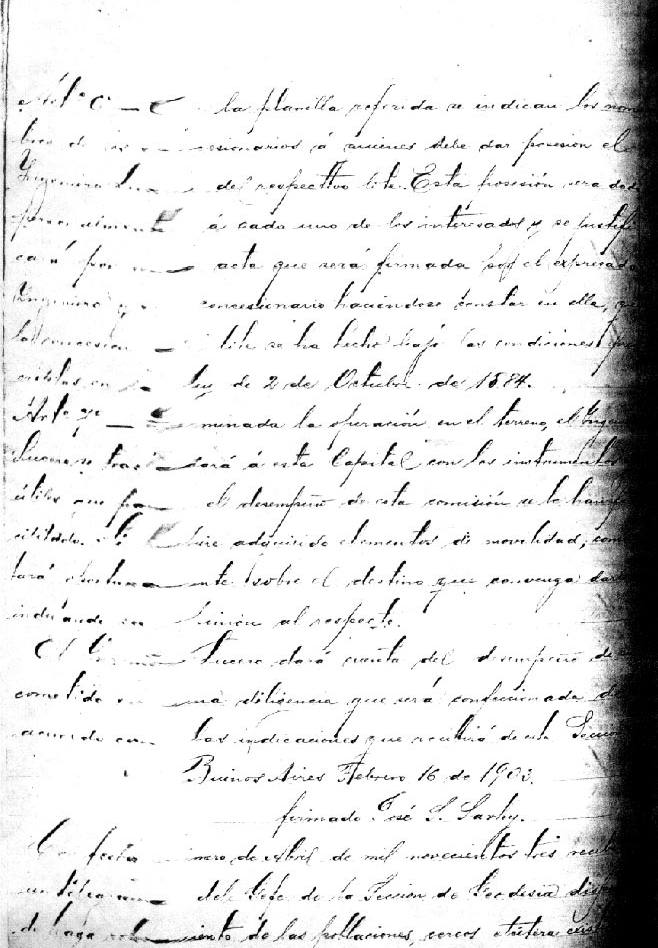 Art° 6° — la planilla referida se indican los nom
bres de los sionarios á quienes debe dar posesion el
Ingeniero del respectivo lote. Esta posesión sera dada
personalmente á cada uno de los interesados y se justifi
cará por acta que será firmada por el expresado
Ingeniero y concesionario haciendose constar en ella, que
la concesion lote se ha hecho bajo las condiciones pres
criptas en la ley de 2 de Octubre de 1884.
Art° 7° — minada la operación en el terreno, el Ingen
Lucero se trasladará á esta Capital con los instrumentos
útiles que para el desempeño de esta comisión se le han fa
cilitado. adquirido elementos de movilidad, con
tará oportunamente sobre el destino que convenga dar
indicando su opinion al respecto.
El Lucero dará cuenta del desempeño de
cometido en una diligencia que será confeccionada de
acuerdo con las indicaciones que recibirá de esta
Buenos Aires Febrero 16 de 1903.
firmado José S.
Con fecha de Abril de mil novecientos tres
un telegrama del Gefe de la Seccion de Geodesia
haga de las poblaciones, cercos etcetera